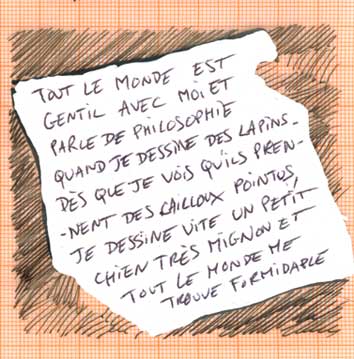 TOUT LE MONDE EST
GENTIL AVEC MOI ET
PARLE DE PHILOSOPHIE
QUAND JE DESSINE DES LAPINS-
DÈS QUE JE VOIS QU'ILS PREN-
-NENT DES CAILLOUX POINTUS,
JE DESSINE VITE UN PETIT
CHIEN TRÈS MIGNON ET
TOUT LE MONDE ME
TROUVE FORMIDABLE